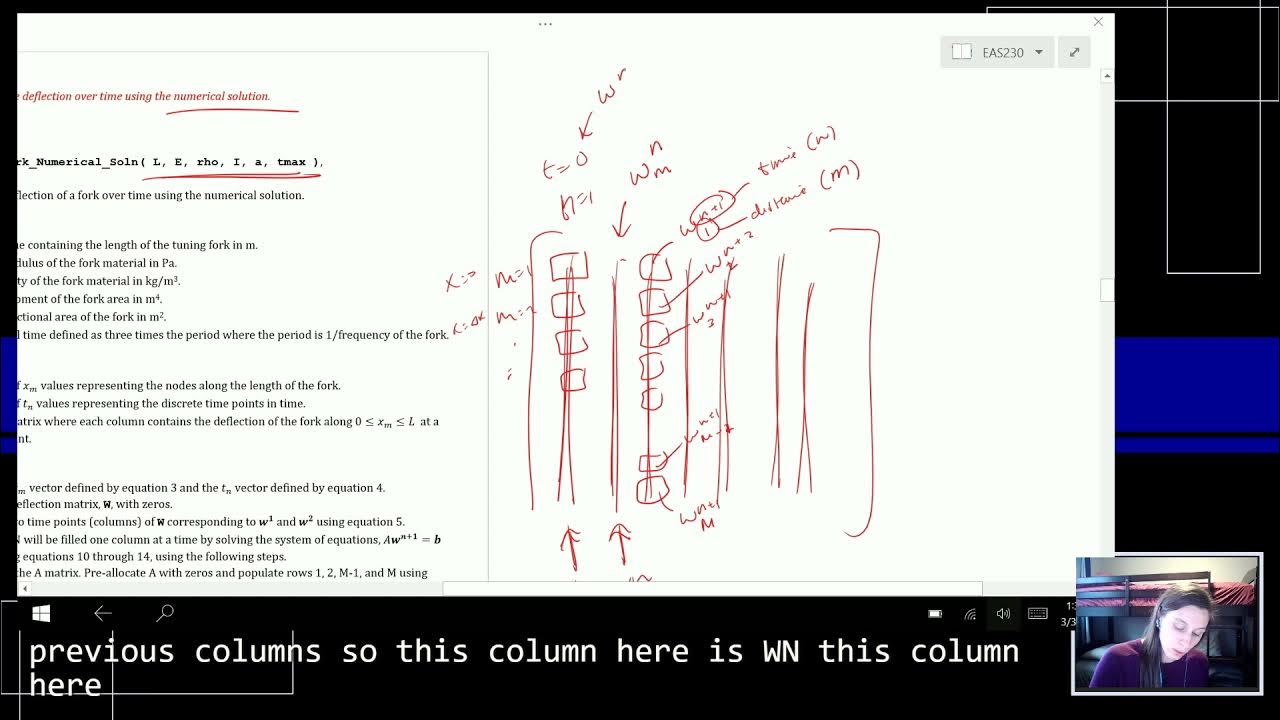 EAS230
e deflection over time using the numerical solution.
rk_Numerical_Soln( L, E, rho, I, a, tmax ),
flection of a fork over time using the numerical solution.
e containing the length of the tuning fork in m.
dulus of the fork material in Pa.
ty of the fork material in kg/m³.
oment of the fork area in m⁴.
ctional area of the fork in m².
l time defined as three times the period where the period is 1/frequency of the fork.
f xₘ values representing the nodes along the length of the fork.
f tₙ values representing the discrete time points in time.
atrix where each column contains the deflection of the fork along 0 ≤ xₘ ≤ L at a
nt.
m vector defined by equation 3 and the tₙ vector defined by equation 4.
eflection matrix, W, with zeros.
o time points (columns) of W corresponding to w¹ and w² using equation 5.
N will be filled one column at a time by solving the system of equations, Awⁿ⁺¹ = b
g equations 10 through 14, using the following steps.
the A matrix. Pre-allocate A with zeros and populate rows 1, 2, M-1, and M using
t=0
n=1
time (n)
distance (m)
m=1
m=2
previous columns so this column here is WN this column
here